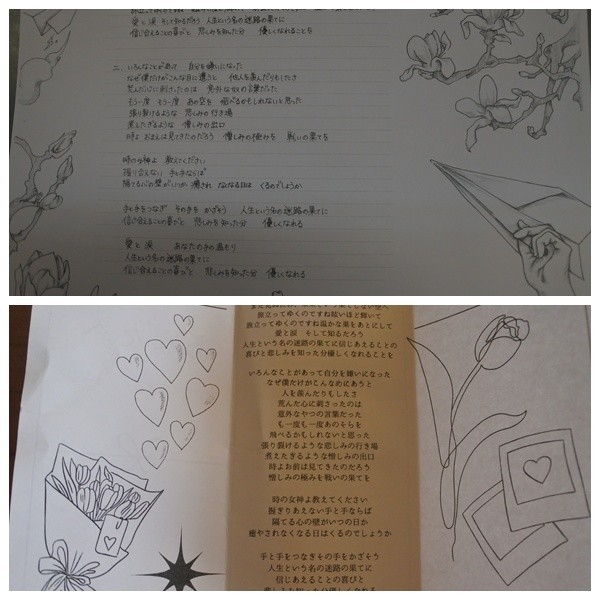 愛と涙 そして知るだろう 人生という名の迷路の果てに
信じ合えることの喜びと 悲しみを知った分 優しくなれることを
二、いろんなことがあって 自分を嫌いになった
なぜ僕だけがこんな目に遭うと 他人を羨んだりもしたさ
荒んだ心に刺さったのは 意外な奴の言葉だった
もう一度 もう一度 あの空を 飛べるかもしれないと思った
張り裂けるような 悲しみの行き場
煮えたぎるような 憎しみの出口
時よ おまえは見てきたのだろう 憎しみの極みを 戦いの果てを
時の女神よ 教えてください
握り合えない 手と手ならば
隔てる心の壁がいつか 癒され なくなる日は くるのでしょうか
手と手をつなぎ その手を かざそう 人生という名の迷路の果てに
信じ合えることの喜びと 悲しみを知った分 優しくなれる
愛と涙 あなたの手の温もり
人生という名の迷路の果てに
信じ合えることの喜びと 悲しみを知った分 優しくなれる
旅立ってゆくのですね眩いほど輝いて
旅立ってゆくのですね温かな巣をあとにして
愛と涙 そして知るだろう
人生という名の迷路の果てに信じあえることの
喜びと悲しみを知った分優しくなれることを
いろんなことがあって自分を嫌いになった
なぜ僕だけがこんなめにあうと
人を羨んだりもしたさ
荒んだ心に刺さったのは
意外なやつの言葉だった
も一度も一度あのそらを
飛べるかもしれないと思った
張り裂けるような悲しみの行き場
煮えたぎるような憎しみの出口
時よお前は見てきたのだろう
憎しみの極みを戦いの果てを
時の女神よ教えてください
握ぎりあえない手と手ならば
隔てる心の壁がいつの日か
癒やされなくなる日はくるのでしょうか
手と手をつなぎその手をかざそう
人生という名の迷路の果てに
信じあえることの喜びと
悲しみを知った分優しくなれる